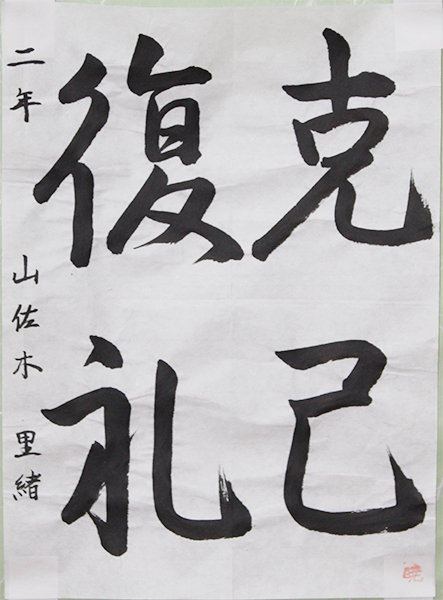 克己
復礼
二年 山佐木里緒